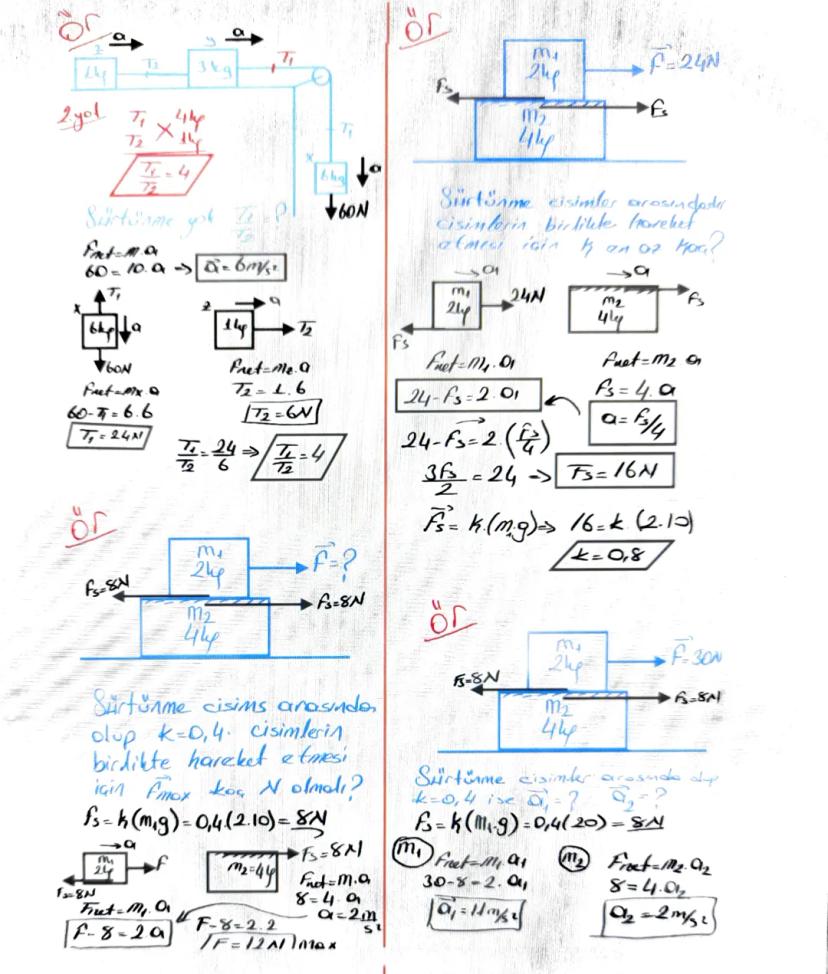 Ör
a
a
z
y
1kg
T₂
3kg
T₁
2.yol
T₁ 4kg
T₂ 1kg
T₁/T₂ = 4
T₁
x
6kg
a
60N
Sürtünme yok T₁/T₂ = ?
Fnet=m.a
60=10.a → a=6m/s²
T₁
x
6kg
a
60N
Fnet=mx.a
60-T₁=6.6
T₁=24N
z
a
1kg
T₂
Fnet=mz.a
T₂=1.6
T₂=6N
T₁/T₂=24/6 ⇒ T₁/T₂=4
Ör
m₁
2kg
F=?
Fs=8N
Fs=8N
m₂
4kg
Sürtünme cisims arasında
olup k=0,4. cisimlerin
birlikte hareket etmesi
için Fmax kaç N olmalı?
fs=k(m₁g)=0,4(2.10)=8N
a
m₁
2kg
F
Fs=8N
Fnet=m₁.a
F-8=2a
m₂=4kg
Fs=8N
Fnet=m.a
8=4.a
a=2m/s²
F-8=2.2
F=12N max
Ör
m₁
2kg
F=24N
Fs
Fs
m₂
4kg
Sürtünme cisimler arasındadır
cisimlerin birlikte hareket
etmesi için k en az kaç?
a
m₁
2kg
24N
Fs
Fnet=m₁.a
24-Fs=2.a
a
m₂
4kg
Fs
Fnet=m₂.a
Fs=4.a
a=Fs/4
24-Fs=2.(Fs/4)
3Fs/2=24 → Fs=16N
Fs=k.(m₁g) ⇒ 16=k(2.10)
k=0,8
Ör
m₁
2kg
F=30N
Fs=8N
Fs=8N
m₂
4kg
Sürtünme cisimler arasında olup
k=0,4 ise a₁=? a₂=?
fs=k(m₁.g)=0,4(20)=8N
m₁
Fnet=m₁.a₁
30-8=2.a₁
a₁=11m/s²
m₂
Fnet=m₂.a₂
8=4.a₂
a₂=2m/s²